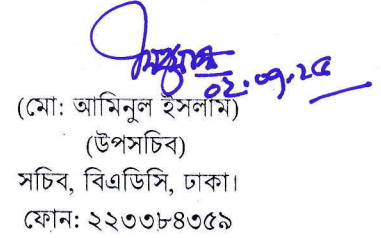 ০২.০৭.২৫
(মো: আমিনুল ইসলাম)
(উপসচিব)
সচিব, বিএডিসি, ঢাকা।
ফোন: ২২৩৩৮৪৩৫৯